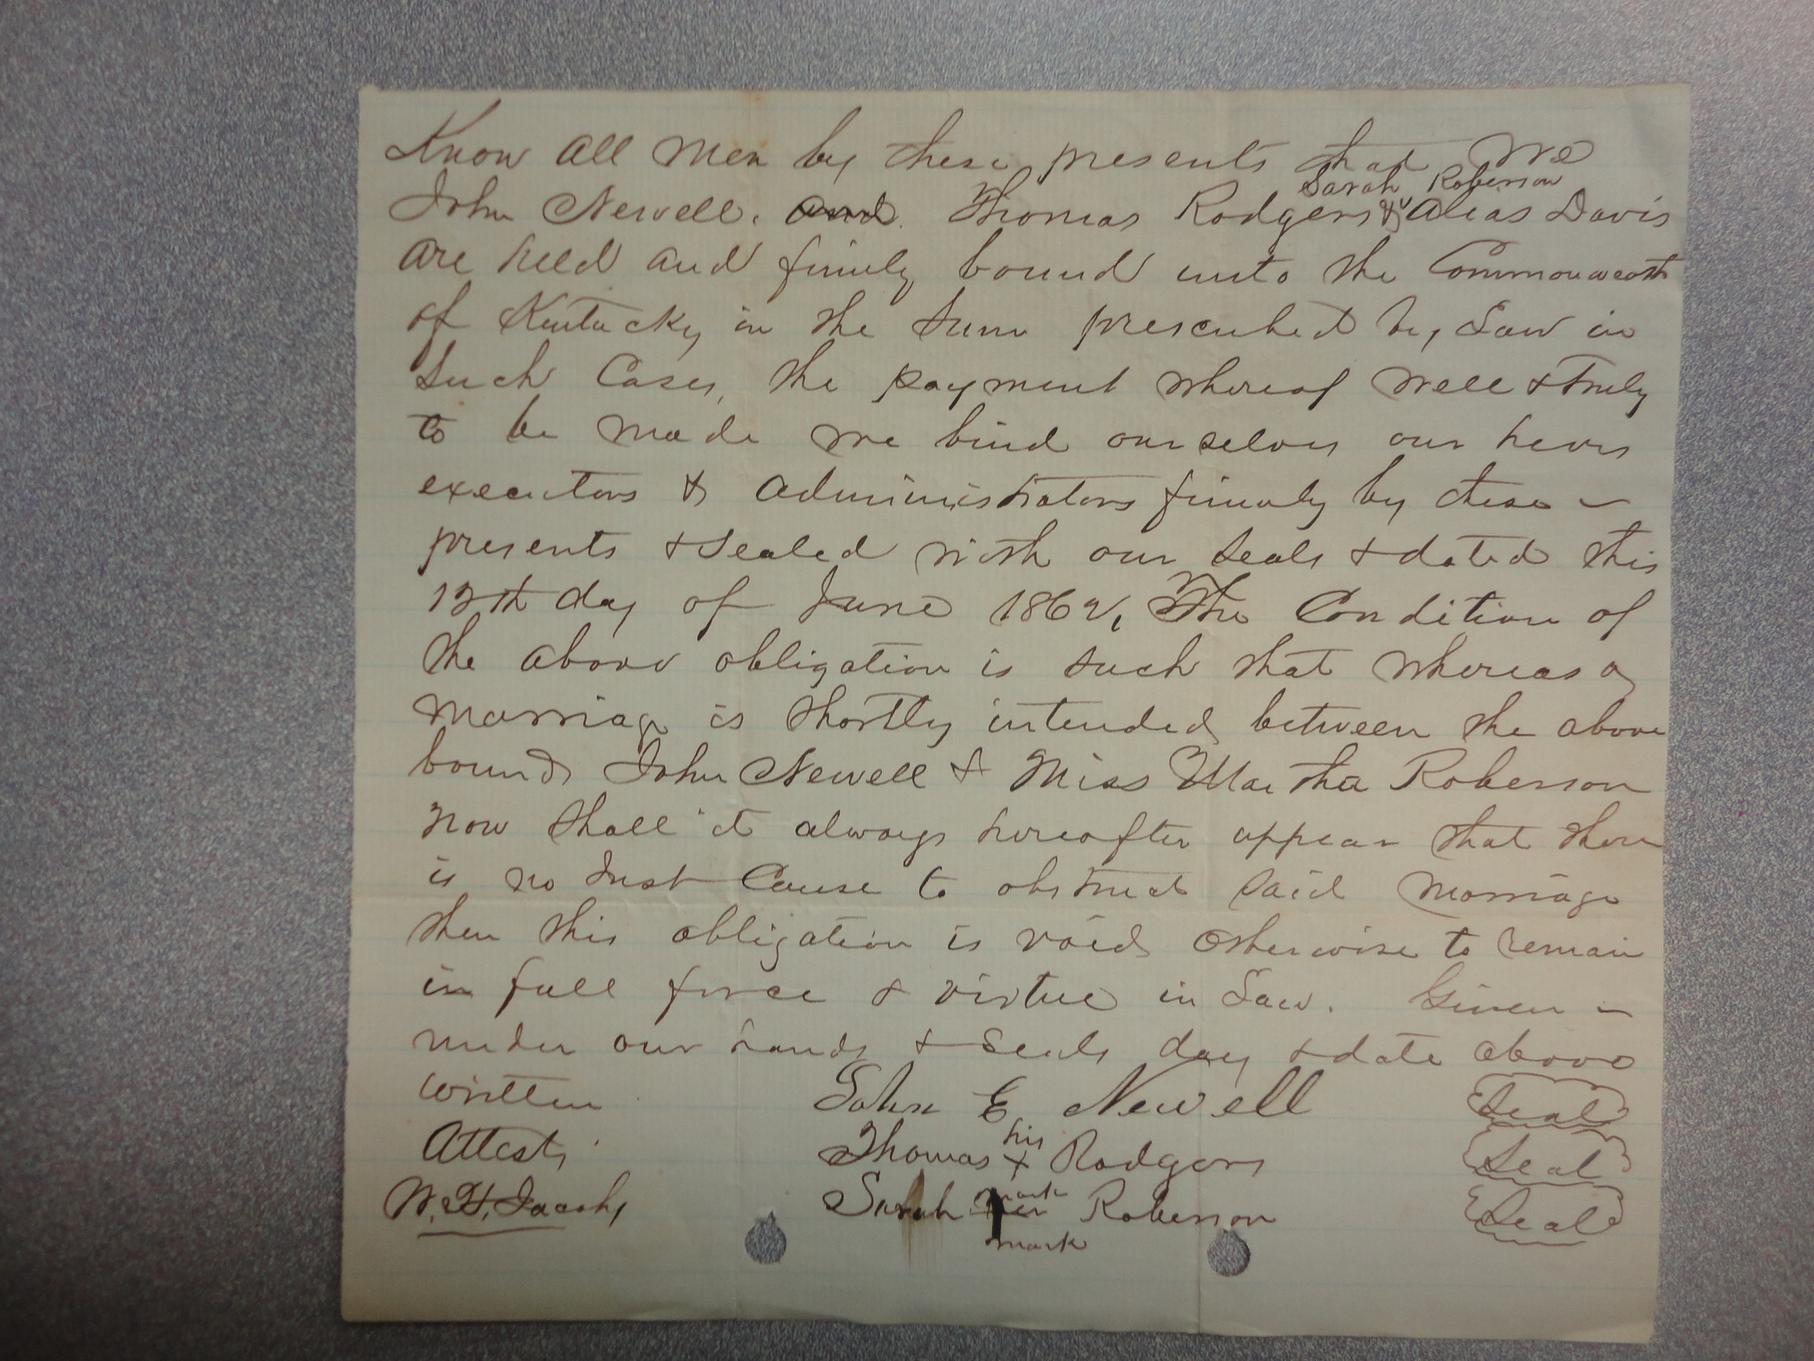 Know all men by these presents that We
John Newell. and. Thomas Rodgers & Sarah Roberson alias Davis
are held and firmly bound unto the Commonwealth
of Kentucky in the Sum prescribed by Law in
Such Cases, the payment whereof well & truly
to be made we bind ourselves our heirs
executors & administrators firmly by these –
presents & sealed with our seals & dated this
12th day of June 1862, The Condition of
the above obligation is such that whereas a
marriage is shortly intended between the above
bound John Newell & Miss Martha Roberson
Now shall it always hereafter appear that there
is no Just Cause to obstruct said marriage
then this obligation is void otherwise to remain
in full force & virtue in Law. Given –
under our hands & Seals day & date above
written John E. Newell Seal
Attest, Thomas his x mark Rodgers Seal
W. H. Jacobs Sarah her mark Roberson Seal